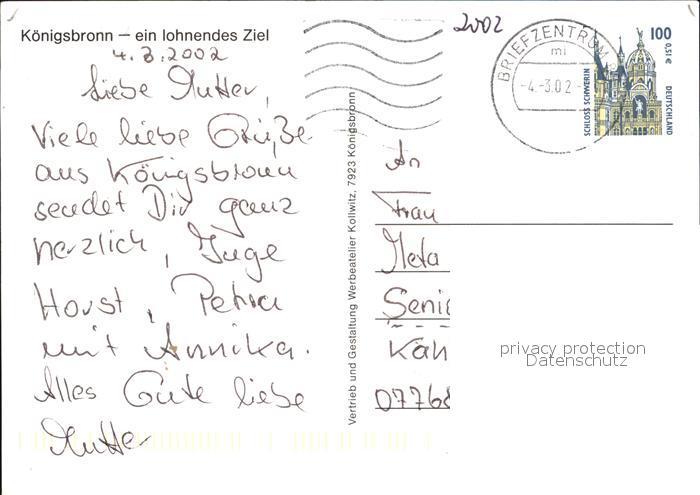 Königsbronn – ein lohnendes Ziel
4.3.2002
Liebe Mutter,
Viele liebe Grüße
aus Königsbronn
sendet Dir ganz
herzlich, Inge
Horst, Petra
mit Annika.
Alles Gute liebe
Mutter
Vertrieb und Gestaltung Werbeatelier Kollwitz, 7923 Königsbronn
2002
BRIEFZENTRUM
mi
-4.-3.02-
100
0,51€
SCHLOSS SCHWERIN
DEUTSCHLAND
An
Frau
Meta
Senio
Kah
07768
privacy protection
Datenschutz